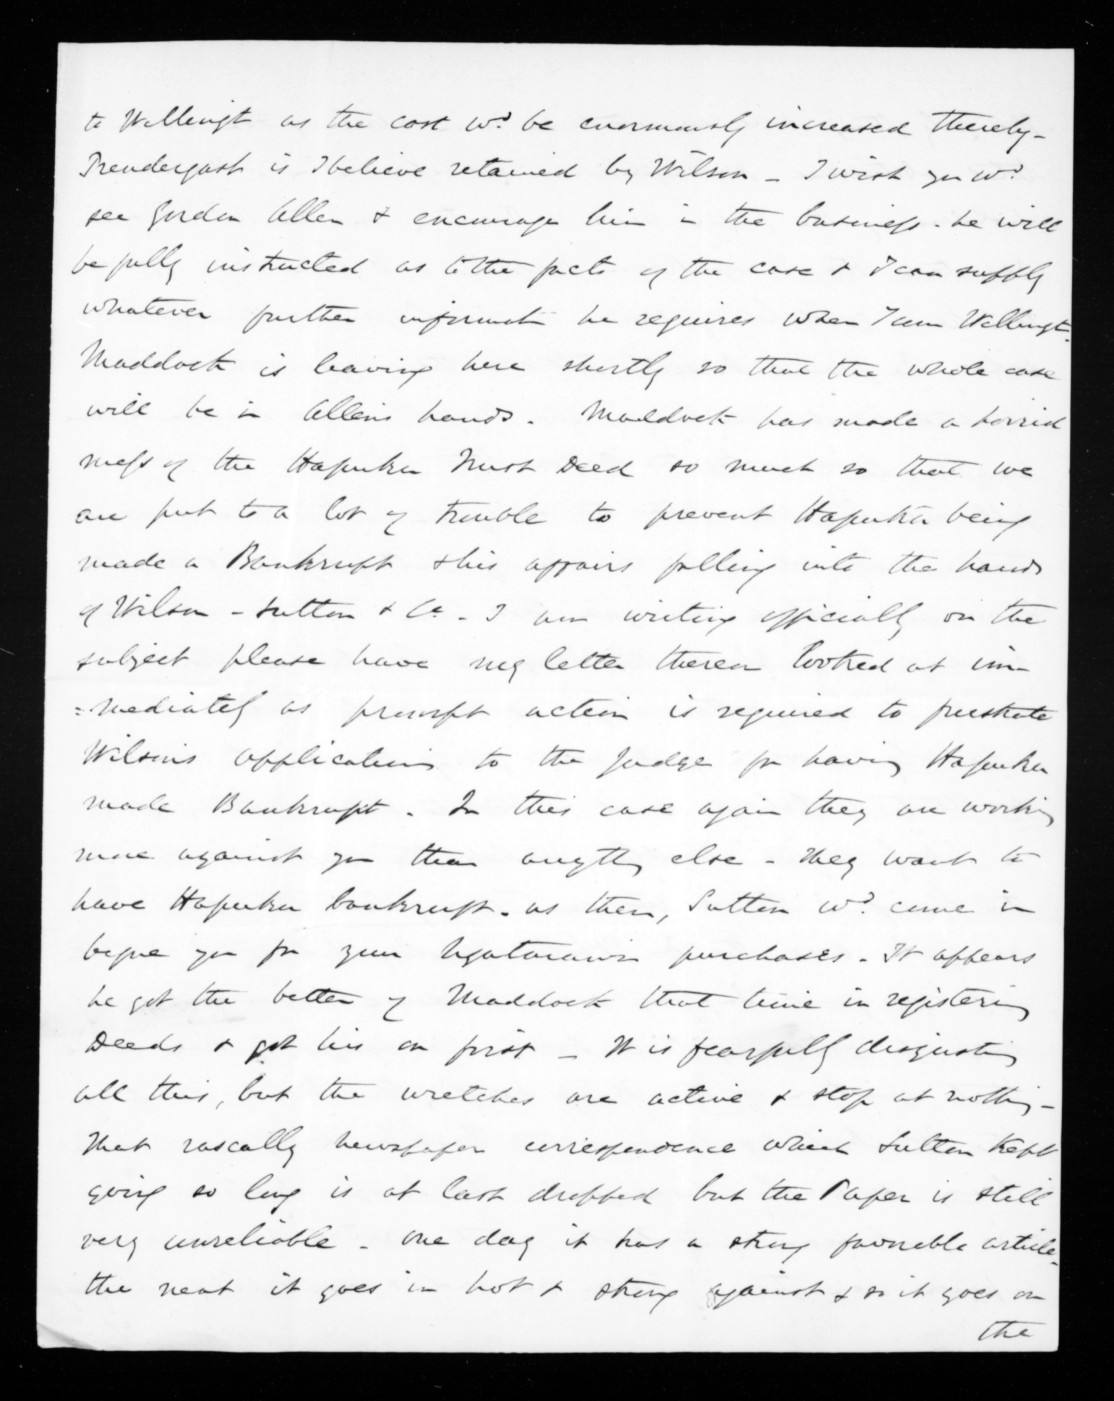 to Wellingt as the cost wd. be enormously increased thereby -
Prendergast is I believe retained by Wilson - I wish you wd.
see Gordon Allen & encourage him in the business. he will
be fully instructed as to the facts of the case & I can supply
whatever further informatn he requires when I am Wellingt.
Maddock is leaving here shortly so that the whole case
will be in Allens hands. Maddock has made a horrid
mess of the Hapuku Trust Deed so much so that we
are put to a lot of trouble to prevent Hapuku being
made a Bankrupt & his affairs falling into the hands
of Wilson - Sutton & Co. - I am writing officially on the
subject please have my letter thereon looked at im
=mediately as prompt action is required to frustrate
Wilson's application to the Judge for having Hapuku
made Bankrupt. In this case again they are working
more against you than anythg else - They want to
have Hapuku bankrupt. as then, Sutton wd. come in
before you for your Ngatarawa purchases. It appears
he got the better of Maddock that time in registering
Deeds & got his on first - It is fearfully disgusting
all this, but the wretches are active & stop at nothing -
That rascally newspaper correspondence which Sutton kept
going so long is at last dropped but the Paper is still
very unreliable - one day it has a strong favorable article -
the next it goes in hot & strong against & so it goes on
the